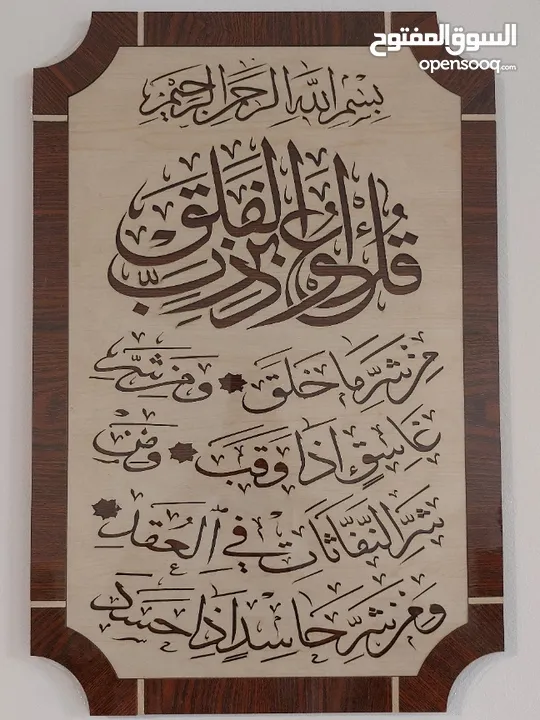 السوق المفتوح
opensooq.com
بسم الله الرحمن الرحيم
قل أعوذ برب الفلق
من شر ما خلق ومن شر
غاسق اذا وقب ومن
شر النفاثات في العقد
ومن شر حاسد اذا حسد